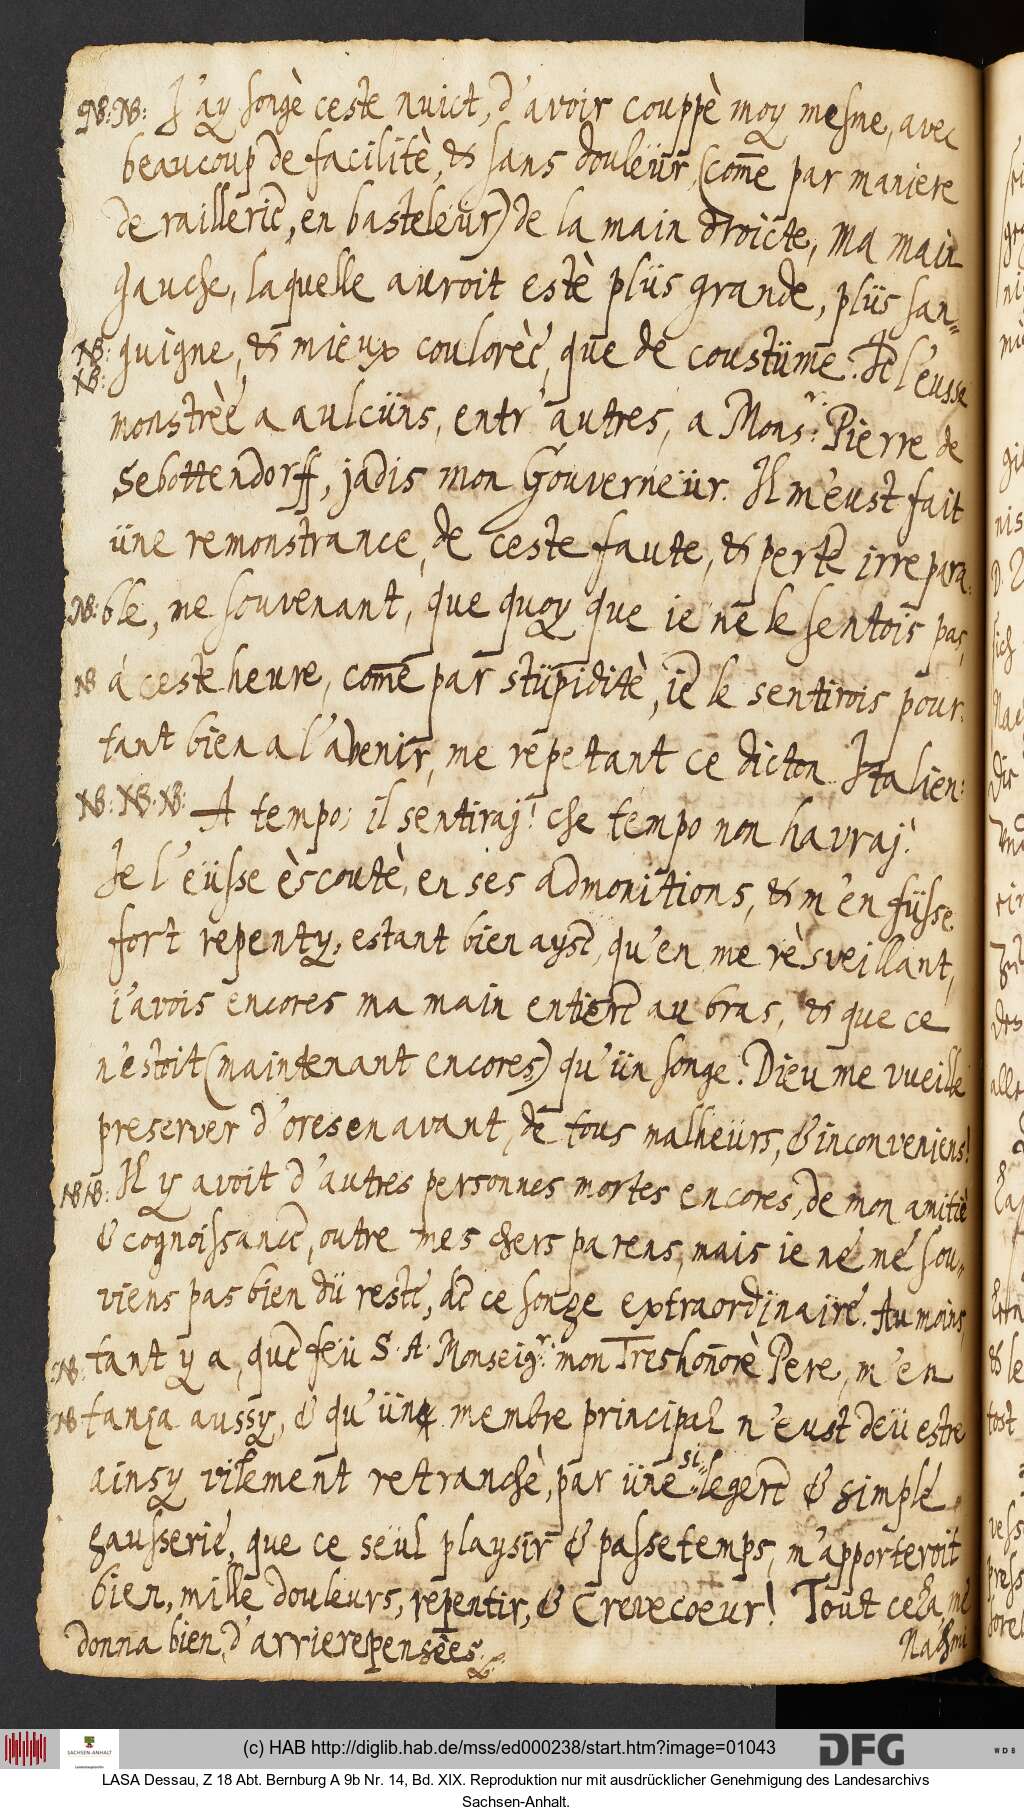 NB: NB: J'ay songè ceste nuict, d'avoir couppè moy mesme, avec
beaucoup de facilitè, & sans douleür, (com̄e par maniere
de raillerie, en basteleür) de la main droicte, ma main
gauche, laquelle auroit estè plüs grande, plüs san-
NB: guigne, & mieux coulorèe, que de coustüme. Je l'eusse
NB: monstrèe a aulcüns, entr'autres, a Mons.r: Pierre de
Sebottendorff, jadis mon Gouverneür. Il m'eust fait
üne remonstrance, de ceste faute, & perte irrepara-
NB: ble, me souvenant, que quoy que ie ne le sentois pas,
NB à ceste heure, com̄e par stüpiditè, ie le sentirois pour-
tant bien a l'avenir, me repetant ce dicton Italien:
NB: NB: NB: A tempo; il sentiraj! che tempo non havraj!
Je l'eüsse èscoutè, en ses admonitions, & m'en füsse
fort repenty, estant bien ayse, qu'en me rèsveillant,
i'avois encores ma main entiere au bras, & que ce
n'estoit (maintenant encores) qu'ün songe. Dieu me vueille
preserver d'oresenavant, de tous malheürs, & inconveniens!
NB NB: Il y avoit d'autres personnes mortes encores, de mon amitiè
& cognoissance, outre mes chers parens, mais ie ne me sou-
viens pas bien dü reste, de ce songe extraordinaire. Au moins
NB: tant y a, que feü S. A. Monseig.r: mon Treshonnorè Pere, m'en
NB tança aussy, & qu'ün membre principal n'eust deü estre
ainsy vilement retranchè, par üne si legere & simple
gausserie, que ce seül playsir & passetemps, m'apporteroit
bien, mille douleurs, repentir, & Crevecoeur! Tout cela, me
donna bien, d'arrierepensèes.
Nachmi
(c) HAB http://diglib.hab.de/mss/ed000238/start.htm?image=01043
SACHSEN-ANHALT
DFG
WDB
LASA Dessau, Z 18 Abt. Bernburg A 9b Nr. 14, Bd. XIX. Reproduktion nur mit ausdrücklicher Genehmigung des Landesarchivs
Sachsen-Anhalt.